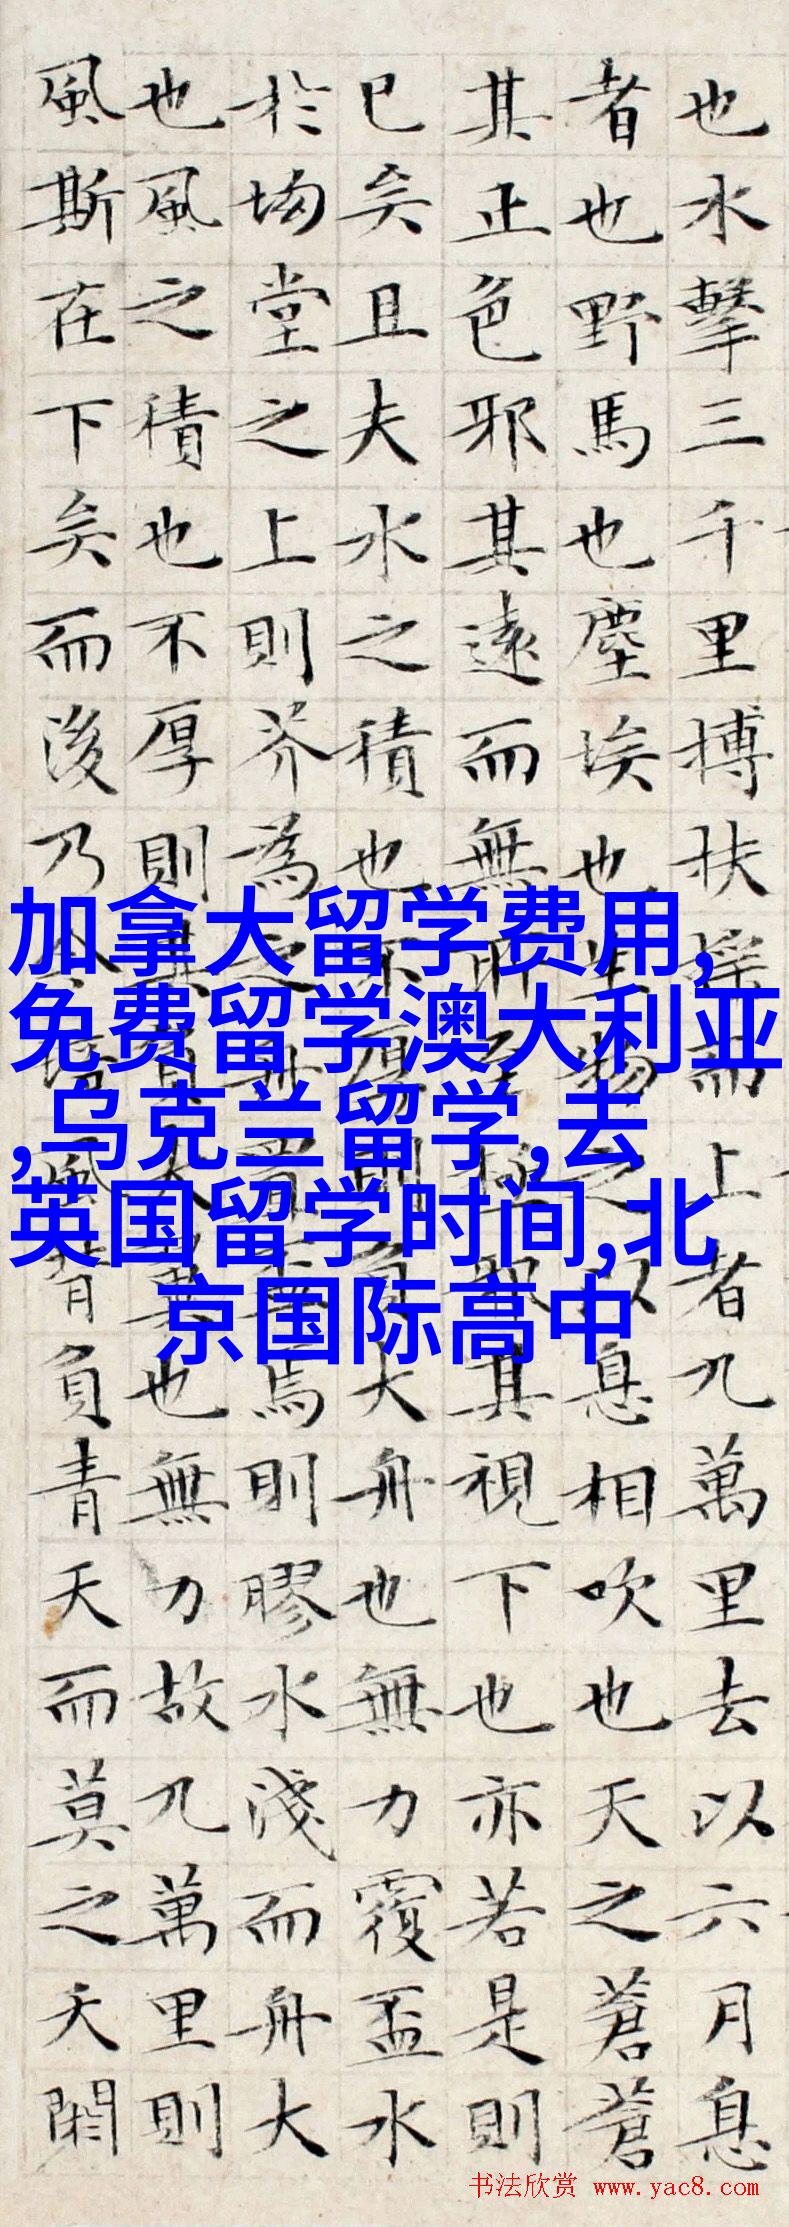 也水擊三千里搏扶搖而上者九萬里去以六月息
者也野馬也塵埃也生物之以息相吹也天之蒼蒼
其正色邪其遠而無所至極邪其視下也亦若是則
已矣且夫水之積也不厚則負大舟也無力覆盃水
於坳堂之上則芥為之舟置焉則膠水淺而舟大
也風之積也不厚則其負大翼也無力故九萬里則
風斯在下矣而後乃今培風背負青天而莫之夭閼
加拿大留学费用,
免费留学澳大利亚
,乌克兰留学,去
英国留学时间,北
京国际高中
书法欣赏 www.yac8.com